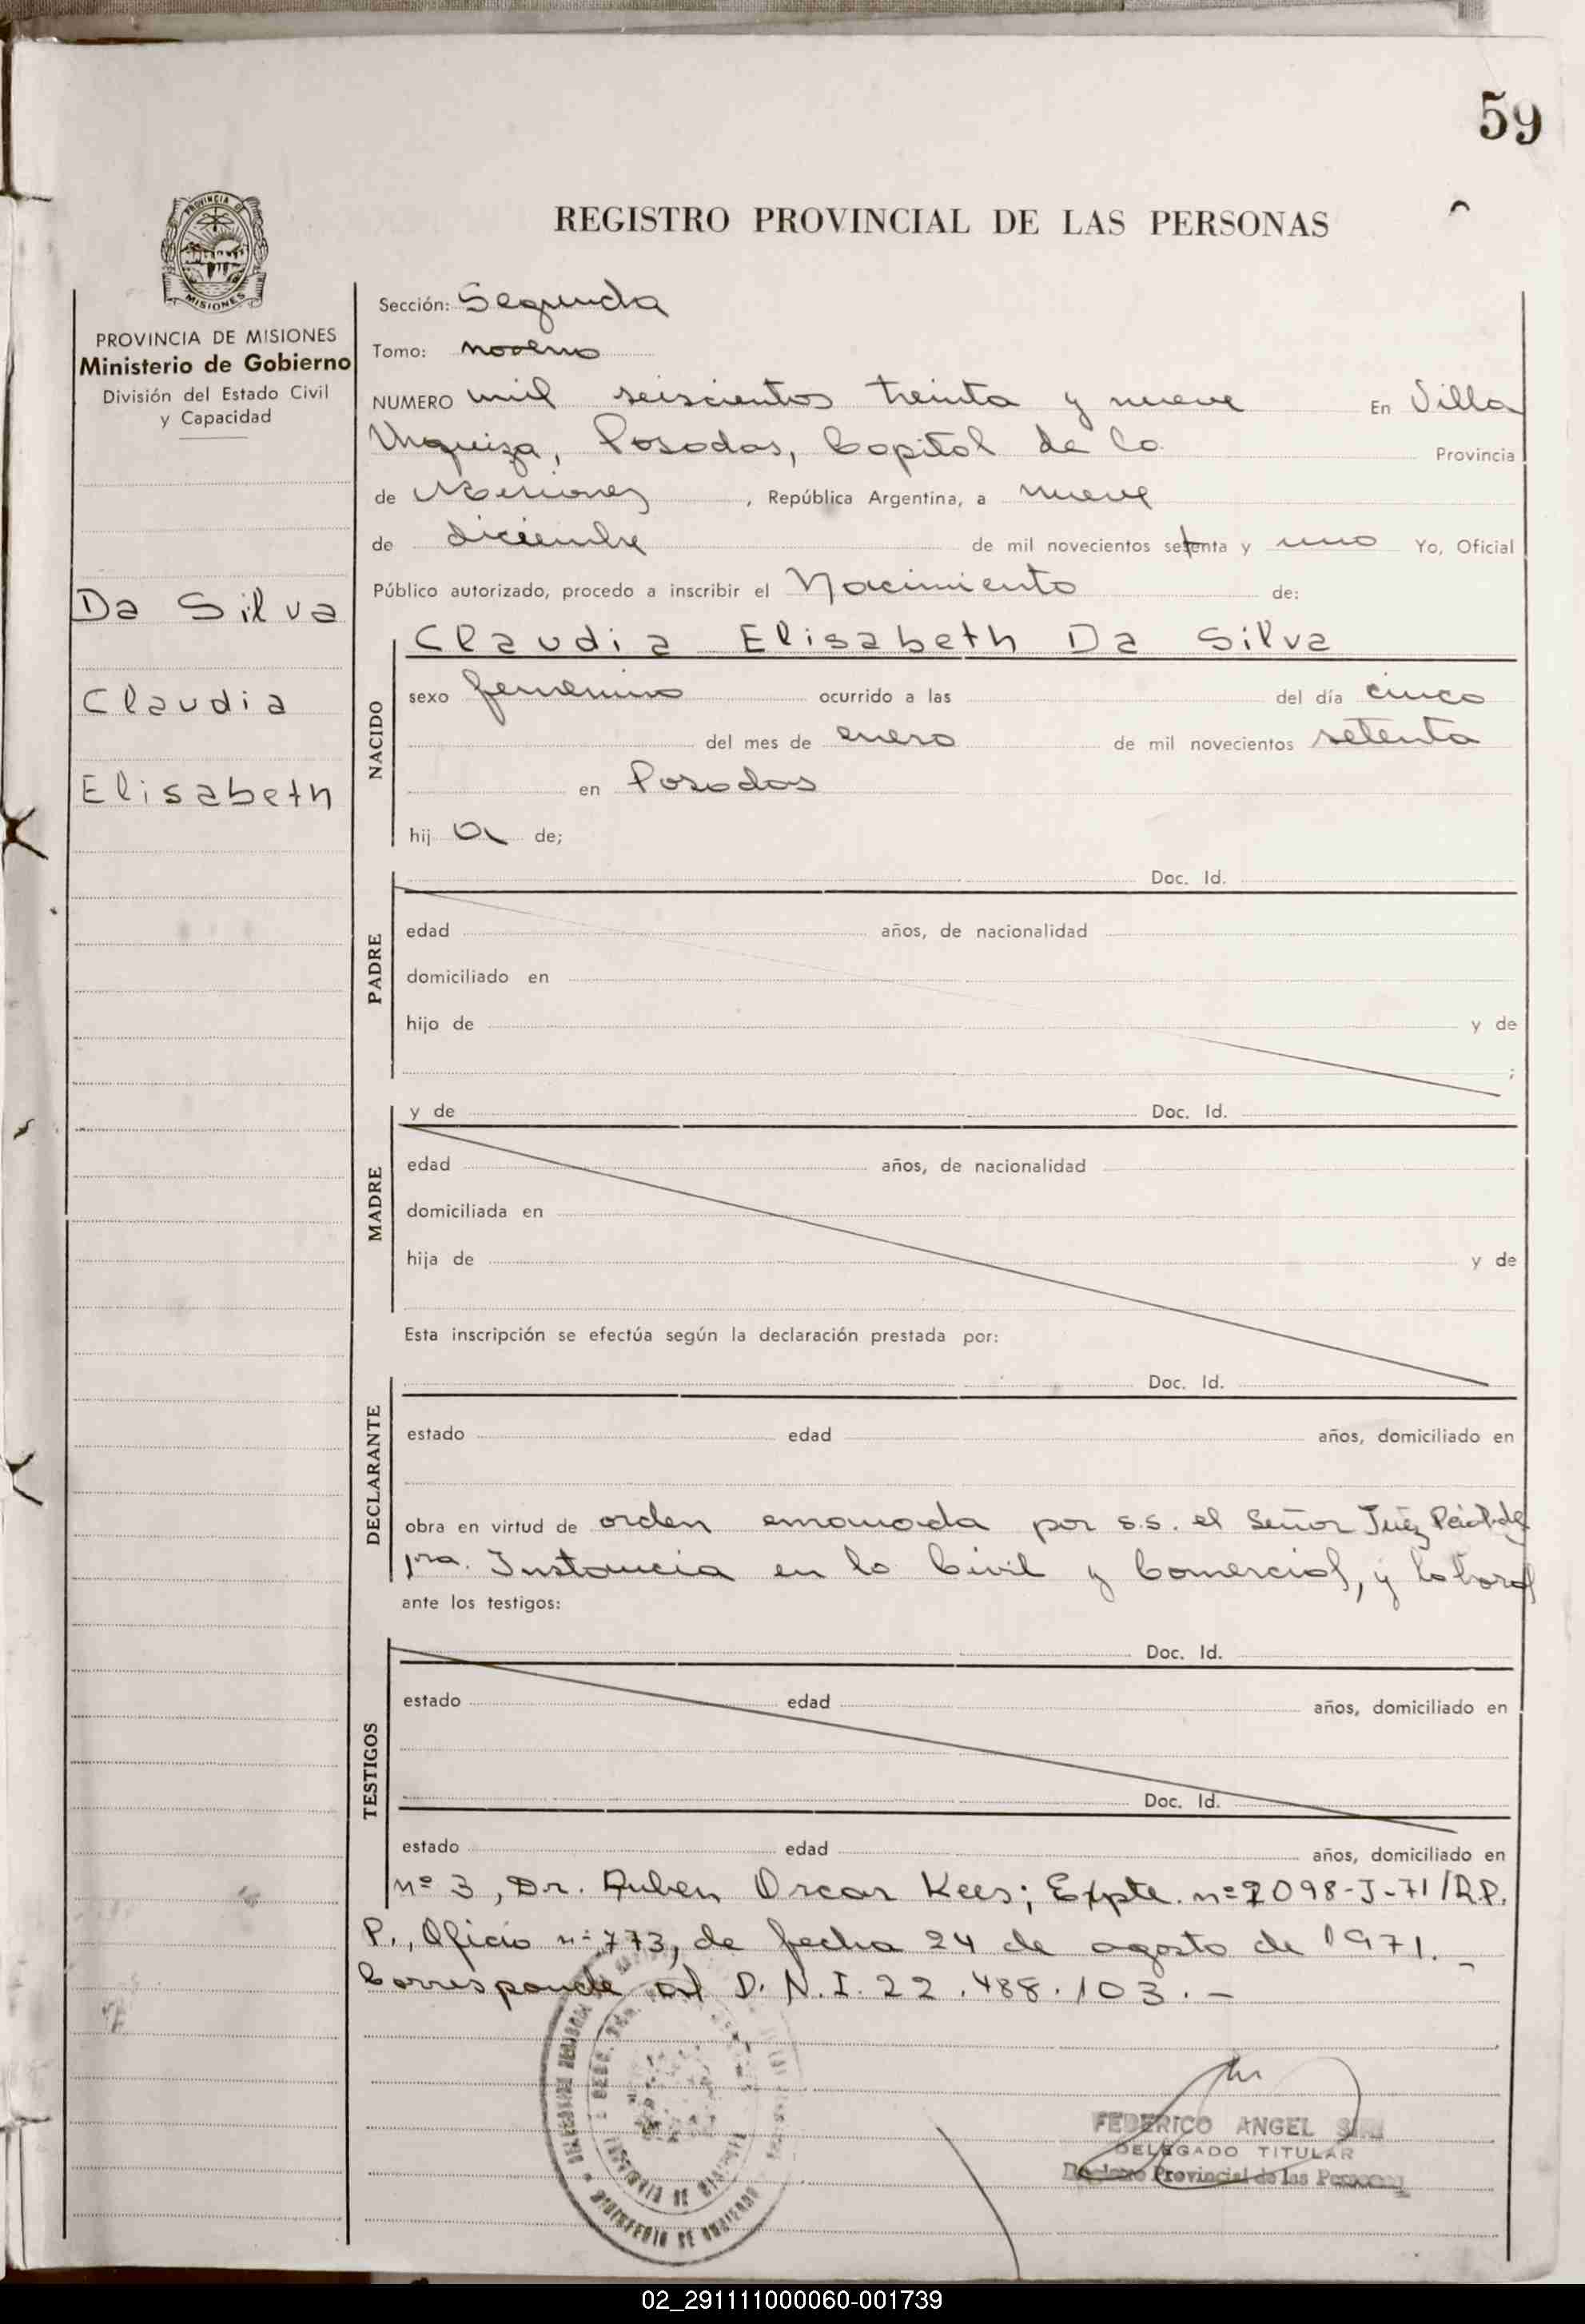 59
REGISTRO PROVINCIAL DE LAS PERSONAS
PROVINCIA DE MISIONES
PROVINCIA DE MISIONES
Ministerio de Gobierno
División del Estado Civil
y Capacidad
Da Silva
Claudia
Elisabeth
Sección: Segunda
Tomo: noveno
NUMERO mil seiscientos treinta y nueve En Villa
Urquiza, Posadas, Capital de la Provincia
de Misiones, República Argentina, a nueve
de diciembre de mil novecientos setenta y uno Yo, Oficial
Público autorizado, procedo a inscribir el Nacimiento de:
Claudia Elisabeth Da Silva
NACIDO
sexo femenino ocurrido a las del día cinco
del mes de enero de mil novecientos setenta
en Posadas
hij a de;
PADRE
Doc. Id.
edad años, de nacionalidad
domiciliado en
hijo de y de
;
MADRE
y de Doc. Id.
edad años, de nacionalidad
domiciliada en
hija de y de
Esta inscripción se efectúa según la declaración prestada por:
DECLARANTE
Doc. Id.
estado edad años, domiciliado en
obra en virtud de orden emanada por S.S. el Señor Juez de
1ra. Instancia en lo Civil y Comercial, y Laboral
ante los testigos:
TESTIGOS
Doc. Id.
estado edad años, domiciliado en
Doc. Id.
estado edad años, domiciliado en
nº 3, Dr. Ruben Oscar Kees; Expte. nº 2098-J-71/R.P.
P., Oficio nº 773, de fecha 24 de agosto de 1971.-
Corresponde al D.N.I. 22.488.103.-
FEDERICO ANGEL
DELEGADO TITULAR
Registro Provincial de las Personas
MINISTERIO DE GOBIERNO
02_291111000060-001739